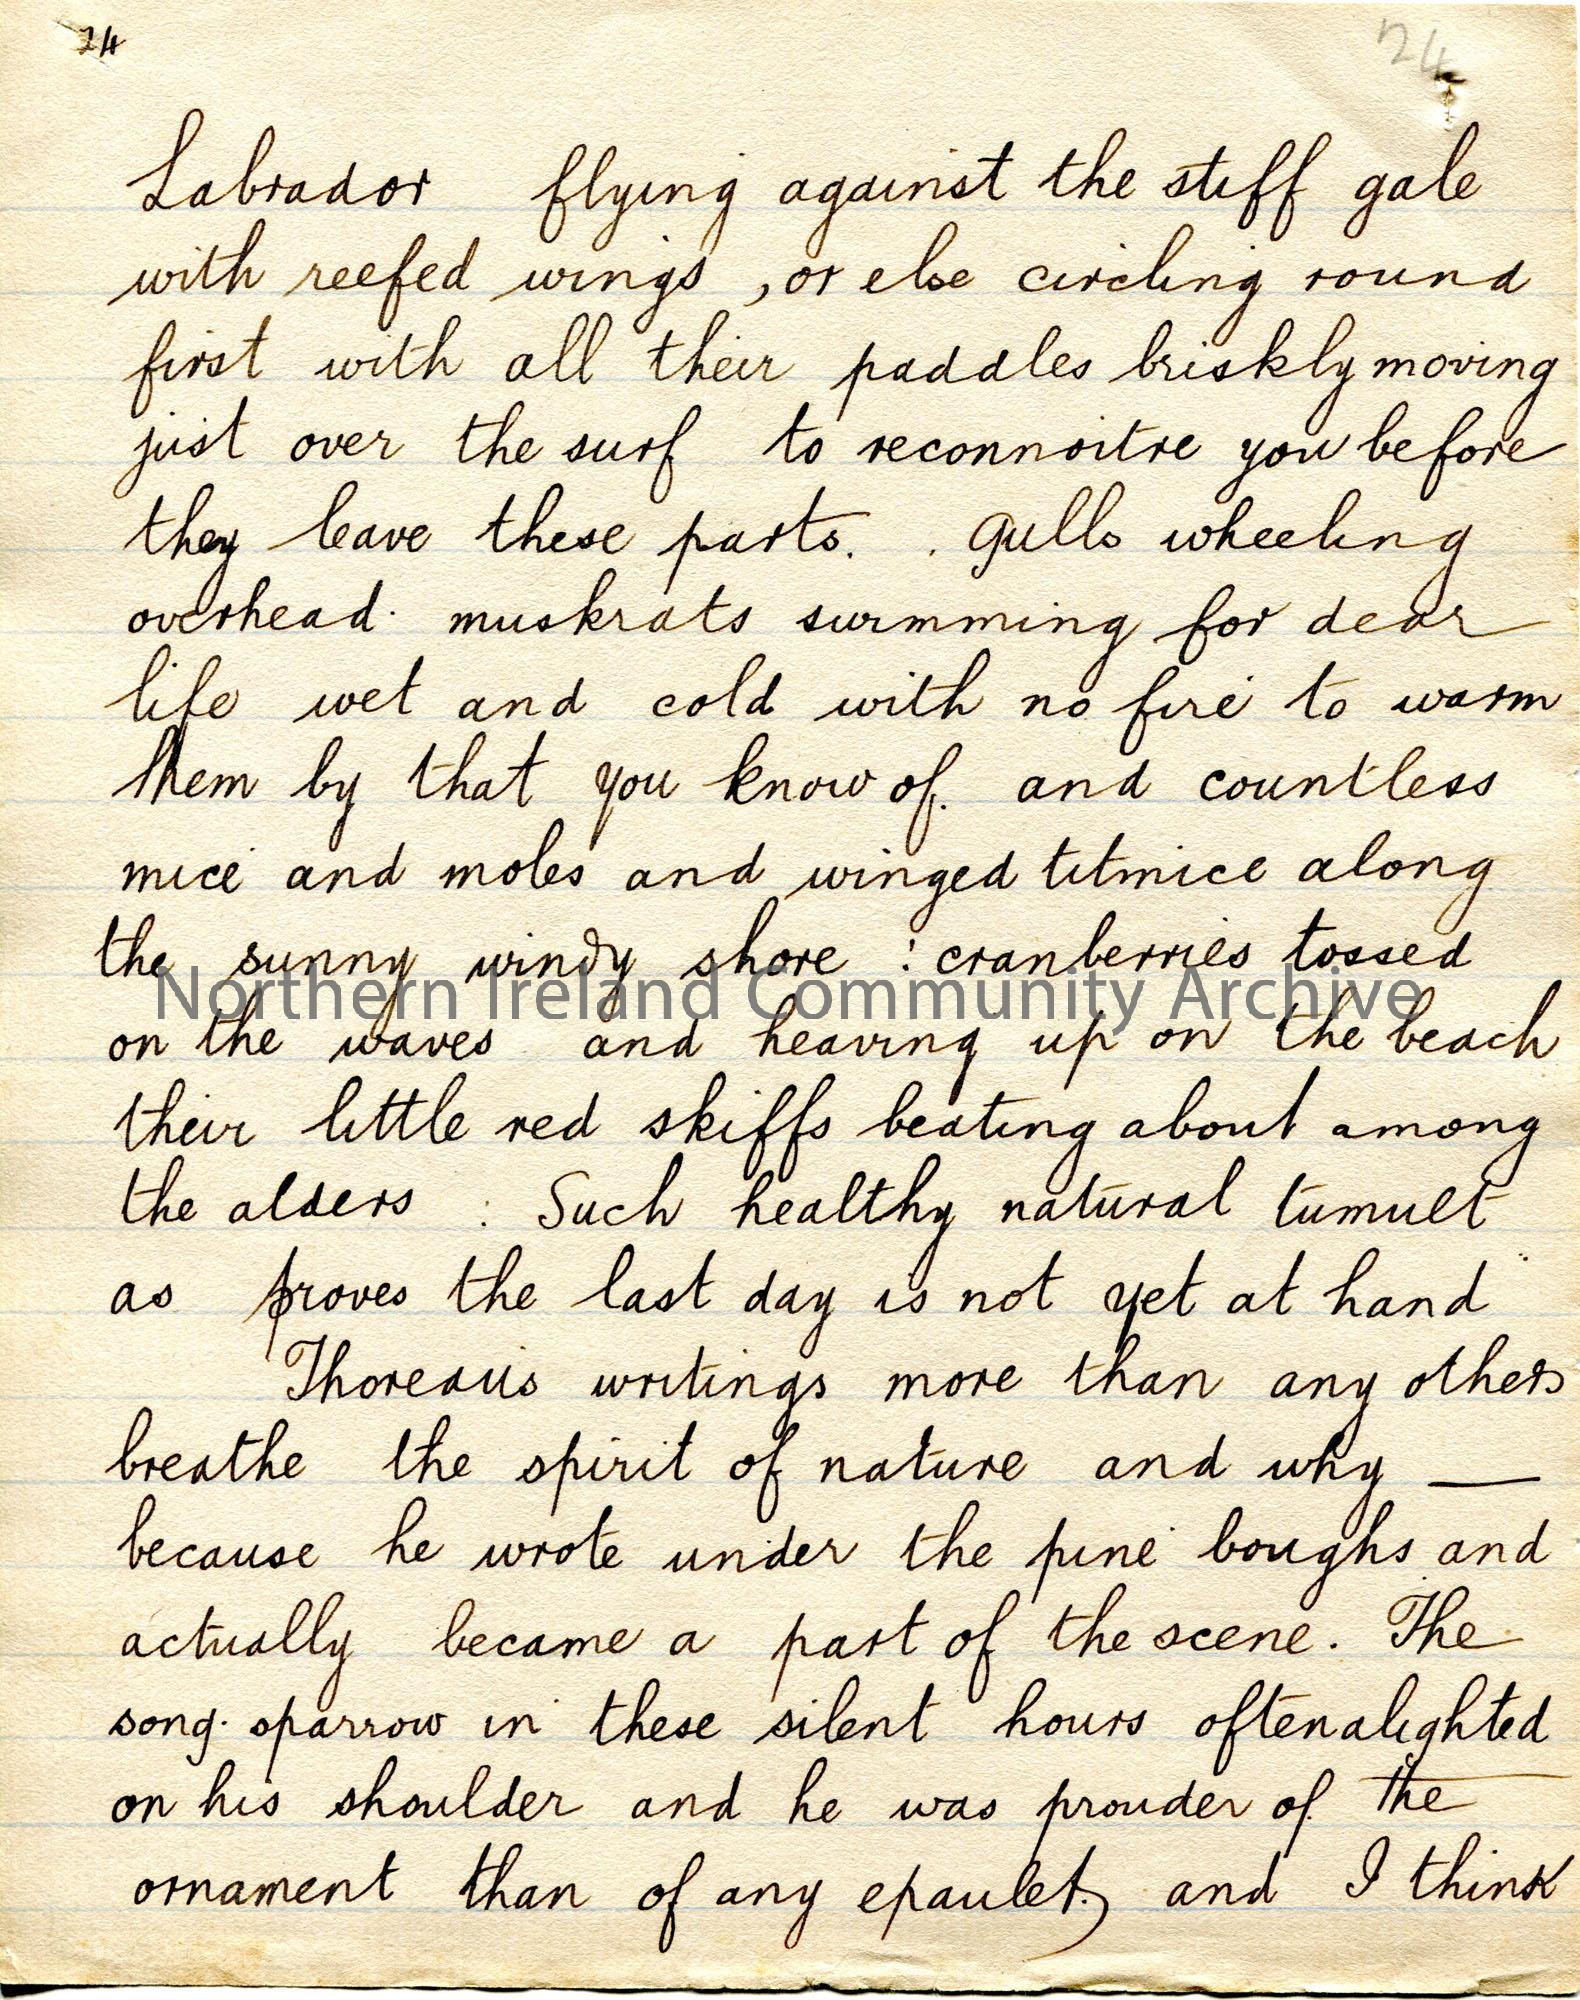 24
24
Labrador flying against the stiff gale
with reefed wings , or else circling round
first with all their paddles briskly moving
just over the surf to reconnoitre you before
they leave these parts. . Gulls wheeling
overhead. muskrats swimming for dear
life wet and cold with no fire to warm
them by that you know of. and countless
mice and moles and winged titmice along
the sunny windy shore : cranberries tossed
Northern Ireland Community Archive
on the waves and heaving up on the beach
their little red skiffs beating about among
the alders : Such healthy natural tumult
as proves the last day is not yet at hand
Thoreau's writings more than any others
breathe the spirit of nature and why —
because he wrote under the pine boughs and
actually became a part of the scene. The
song. sparrow in these silent hours often alighted
on his shoulder and he was prouder of the
ornament than of any epaulet) and I think